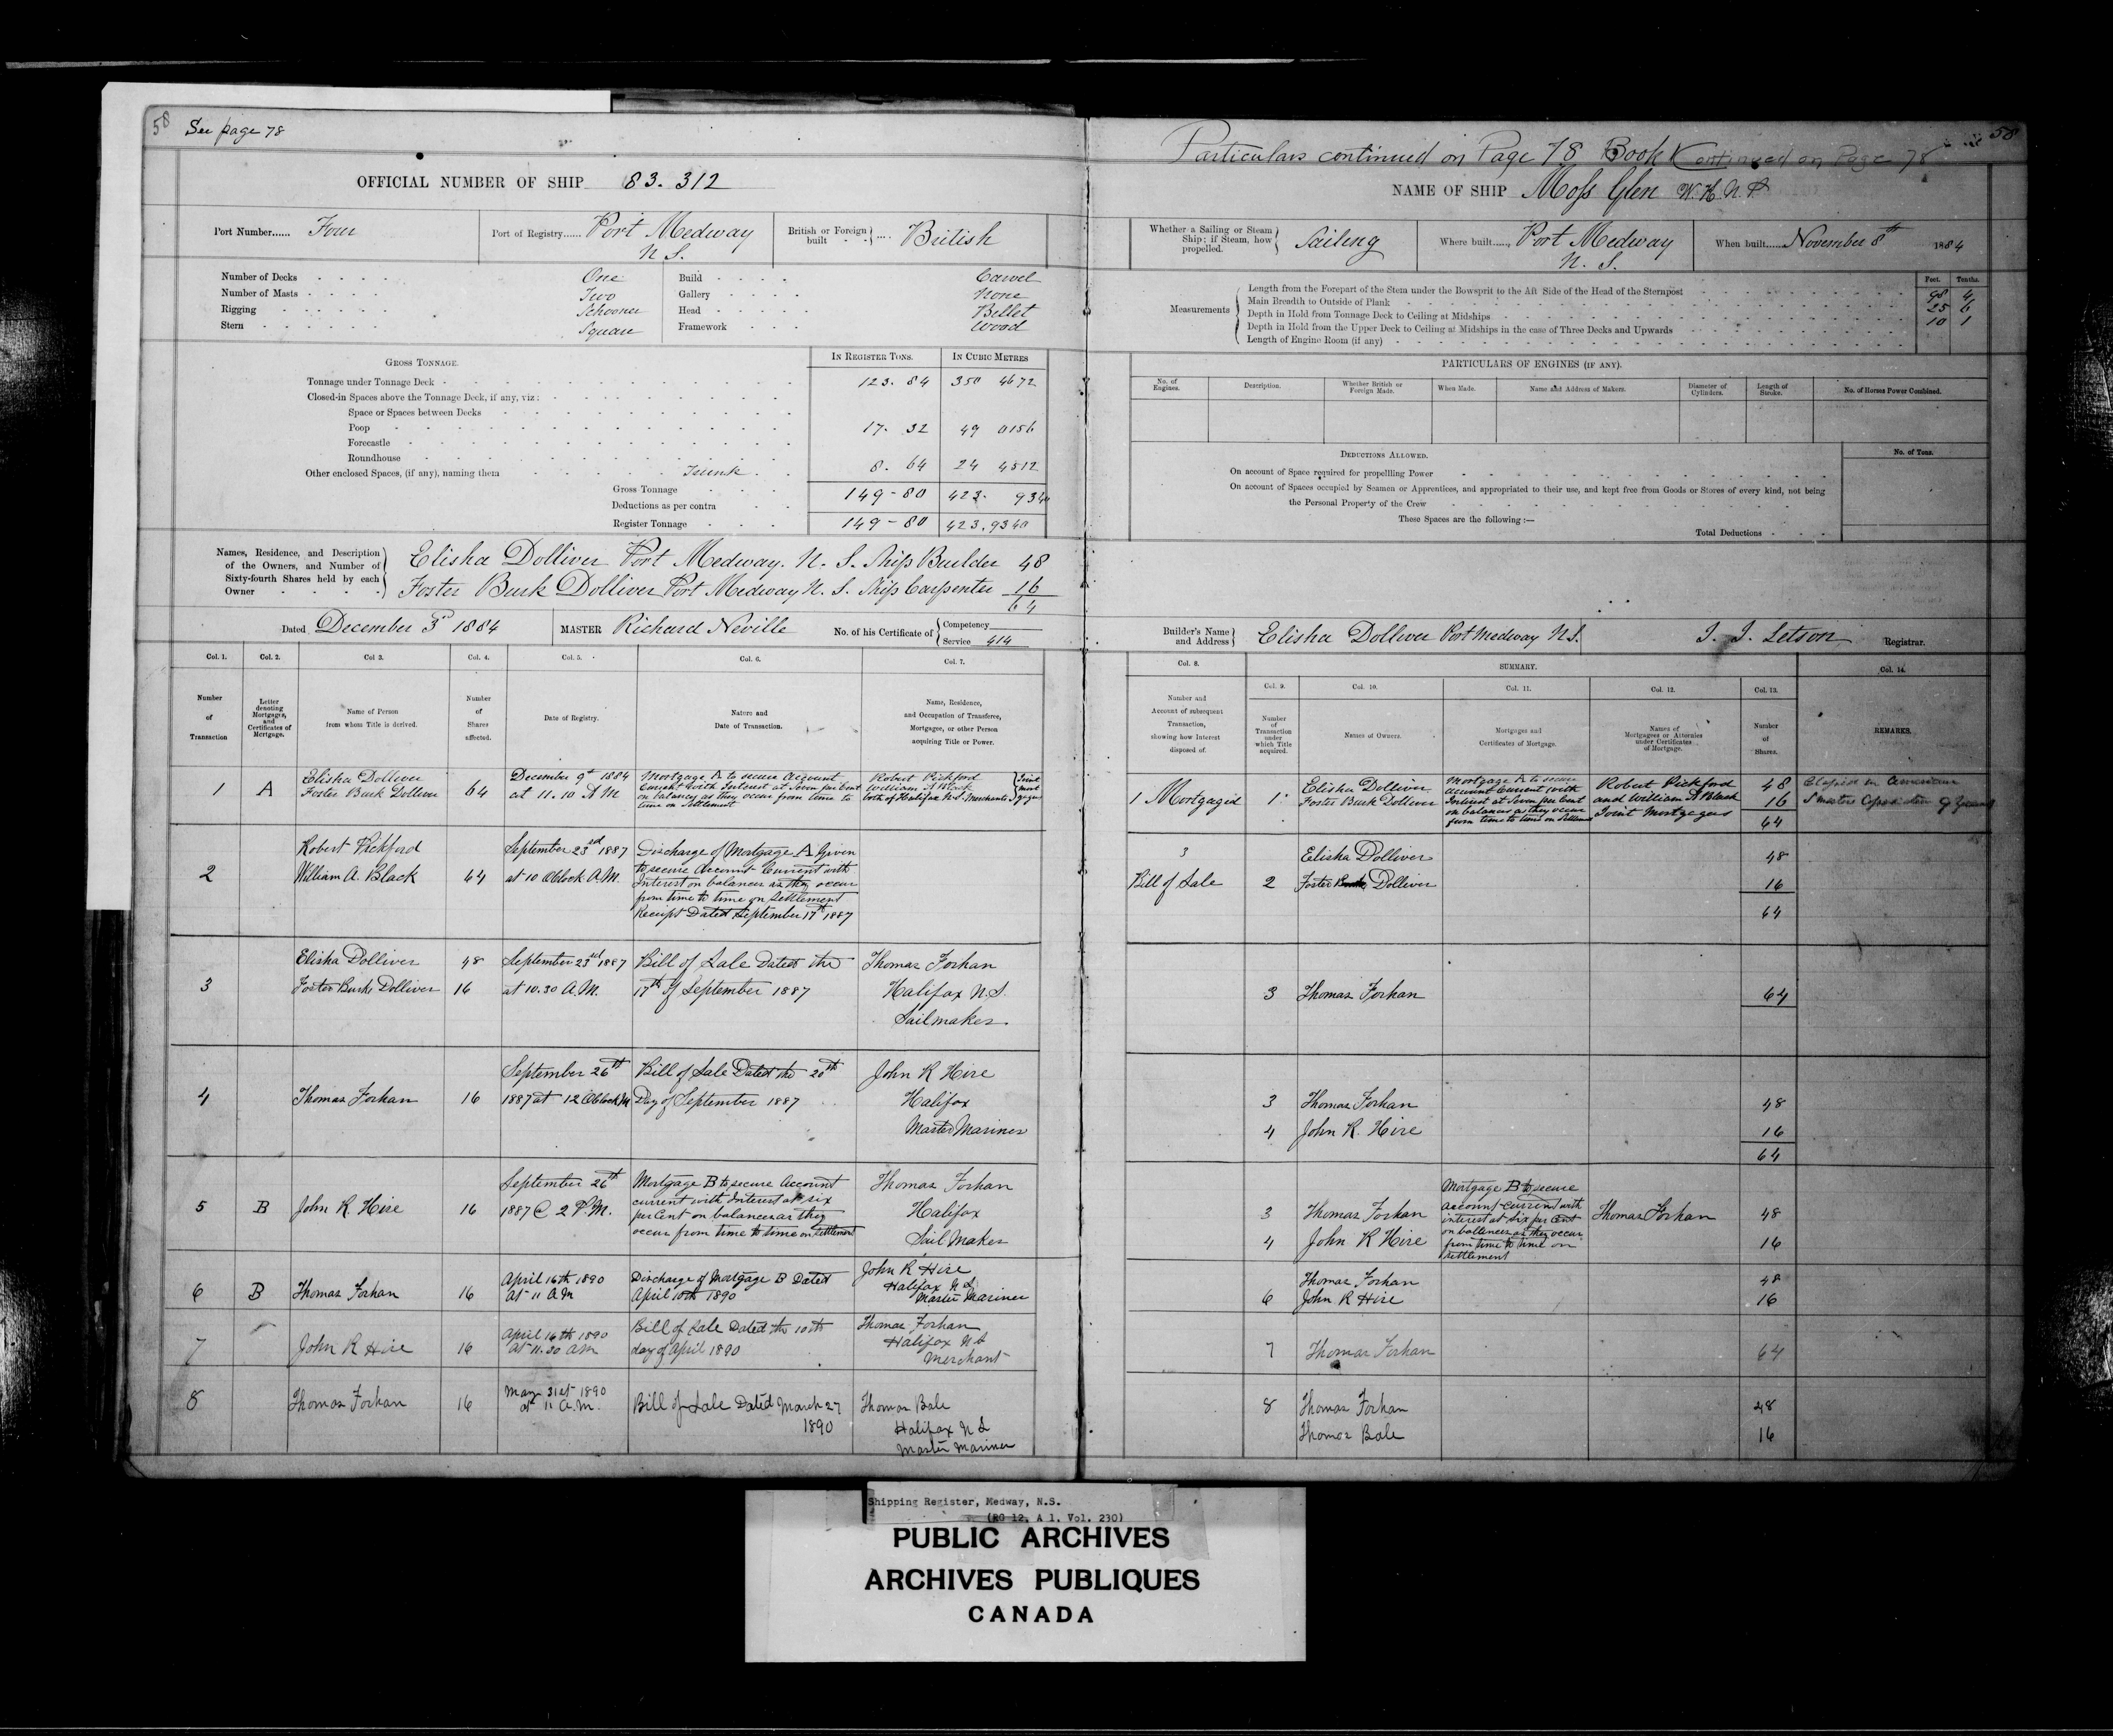 58 See page 78
OFFICIAL NUMBER OF SHIP 83.312
Port Number...... Four
Port of Registry...... Port Medway N S.
British or Foreign built .... British
Number of Decks One
Number of Masts Two
Rigging Schooner
Stern Square
Build Carvel
Gallery None
Head Billet
Framework Wood
GROSS TONNAGE.
IN REGISTER TONS. IN CUBIC METRES
Tonnage under Tonnage Deck 123. 84 350 4672
Closed-in Spaces above the Tonnage Deck, if any, viz:
Space or Spaces between Decks
Poop 17. 32 49 0156
Forecastle
Roundhouse
Other enclosed Spaces, (if any), naming them Trunk 8. 64 24 4512
Gross Tonnage 149-80 423. 9340
Deductions as per contra
Register Tonnage 149-80 423.9340
Names, Residence, and Description of the Owners, and Number of Sixty-fourth Shares held by each Owner
Elisha Dolliver Port Medway. N. S. Ship Builder 48
Foster Burk Dolliver Port Medway N. S. Ship Carpenter 16
64
Dated December 3rd 1884
MASTER Richard Neville
No. of his Certificate of Competency
Service 414
Col. 1. Col. 2. Col 3. Col. 4. Col. 5. Col. 6. Col. 7.
Number of Transaction
Letter denoting Mortgages, and Certificates of Mortgage.
Name of Person from whom Title is derived.
Number of Shares affected.
Date of Registry.
Nature and Date of Transaction.
Name, Residence, and Occupation of Transferee, Mortgagee, or other Person acquiring Title or Power.
1 A Elisha Dolliver Foster Burk Dolliver 64 December 9th 1884 at 11.10 A M
Mortgage A to secure Account Current with Interest at Seven per Cent on balances as they occur from time to time on Settlement
Robert Pickford William A Black both of Halifax N.S. Merchants Joint Mortgagees
2 Robert Pickford William A. Black 64 September 23rd 1887 at 10 Oblock A.M.
Discharge of Mortgage A Given to secure Account Current with Interest on balances as they occur from time to time on Settlement Receipt Dated September 17th 1887
3 Elisha Dolliver 48 Foster Burk Dolliver 16 September 23rd 1887 at 10.30 A.M.
Bill of Sale Dated the 17th of September 1887
Thomas Forhan Halifax N.S. Sailmaker.
4 Thomas Forhan 16 September 26th 1887 at 12 Oblock M
Bill of Sale Dated the 20th Day of September 1887
John R Hire Halifax Master Mariner
5 B John R. Hire 16 September 26th 1887 @ 2 P.M.
Mortgage B to secure Account current with Interest at six per Cent on balances as they occur from time to time on Settlement
Thomas Forhan Halifax Sail Maker
6 B Thomas Forhan 16 April 16th 1890 at 11 A M
Discharge of Mortgage B Dated April 10th 1890
John R Hire Halifax N S Master Mariner
7 John R Hire 16 April 16th 1890 at 11.30 am
Bill of Sale Dated the 10th day of April 1890
Thomas Forhan Halifax N S Merchant
8 Thomas Forhan 16 May 31st 1890 at 11 a.m.
Bill of Sale Dated March 27 1890
Thomas Bale Halifax N S Master Mariner
58
Particulars continued on Page 78 Book Continued on Page 78
NAME OF SHIP Moss Glen W. H. N. P.
Whether a Sailing or Steam Ship; if Steam, how propelled. Sailing
Where built..... Port Medway N. S.
When built..... November 8th 1884
Feet. Tenths.
Measurements
Length from the Forepart of the Stem under the Bowsprit to the Aft Side of the Head of the Sternpost 98 4
Main Breadth to Outside of Plank 25 6
Depth in Hold from Tonnage Deck to Ceiling at Midships 10 1
Depth in Hold from the Upper Deck to Ceiling at Midships in the case of Three Decks and Upwards
Length of Engine Room (if any)
PARTICULARS OF ENGINES (IF ANY).
No. of Engines. Description. Whether British or Foreign Made. When Made. Name and Address of Makers. Diameter of Cylinders. Length of Stroke. No. of Horses Power Combined.
DEDUCTIONS ALLOWED. No. of Tons.
On account of Space required for propelling Power
On account of Spaces occupied by Seamen or Apprentices, and appropriated to their use, and kept free from Goods or Stores of every kind, not being
the Personal Property of the Crew
These Spaces are the following:—
Total Deductions
Builder's Name and Address Elisha Dolliver Port Medway N.S.
J. J. Letson Registrar.
Col. 8. SUMMARY. Col. 14.
Col. 9. Col. 10. Col. 11. Col. 12. Col. 13.
Number and Account of subsequent Transaction, showing how Interest disposed of.
Number of Transaction under which Title acquired.
Names of Owners.
Mortgages and Certificates of Mortgage.
Names of Mortgagees or Attornies under Certificates of Mortgage.
Number of Shares.
REMARKS.
1 Mortgaged 1 Elisha Dolliver Foster Burk Dolliver
Mortgage A to secure Account Current with Interest at Seven per Cent on balances as they occur from time to time on Settlement
Robert Pickford and William A Black Joint Mortgagees 48 16 64
in American
3 Bill of Sale 2 Elisha Dolliver 48
Foster Burk Dolliver 16
64
3 Thomas Forhan 64
3 Thomas Forhan 48
4 John R. Hire 16
64
3 Thomas Forhan 4 John R Hire
Mortgage B to secure Account Current with interest at Six per Cent on ballances as they occur from time to time on settlement
Thomas Forhan 48 16
Thomas Forhan 48
6 John R Hire 16
7 Thomas Forhan 64
8 Thomas Forhan 48
Thomas Bale 16
Shipping Register, Medway, N.S.
(RG 12, A 1, Vol. 230)
PUBLIC ARCHIVES
ARCHIVES PUBLIQUES
CANADA